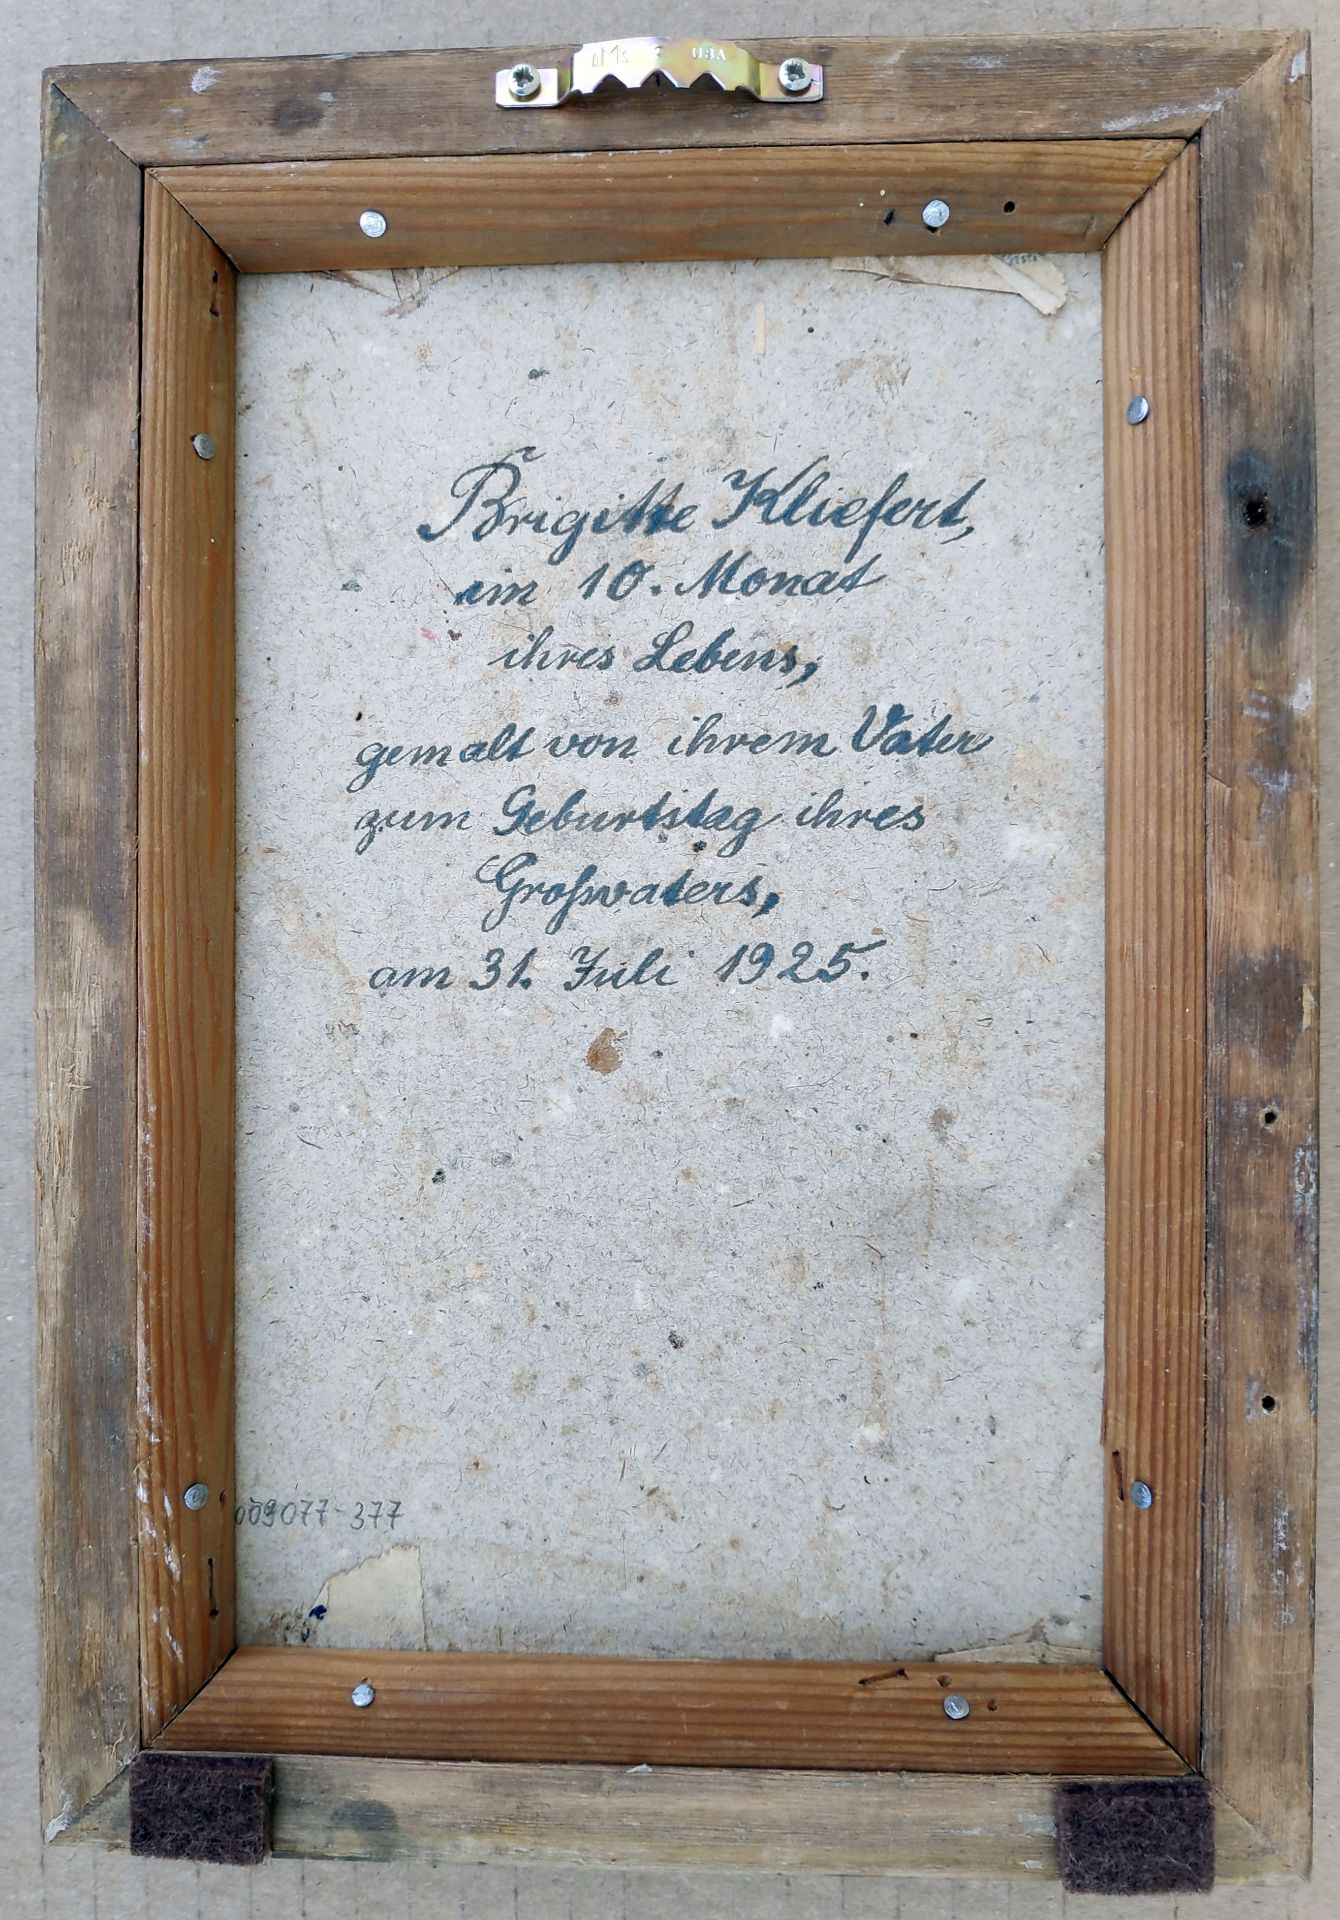 USA
Brigitte Kliefert,
im 10. Monat
ihres Lebens,
gemalt von ihrem Vater
zum Geburtstag ihres
Großvaters,
am 31. Juli 1925.
009077-377